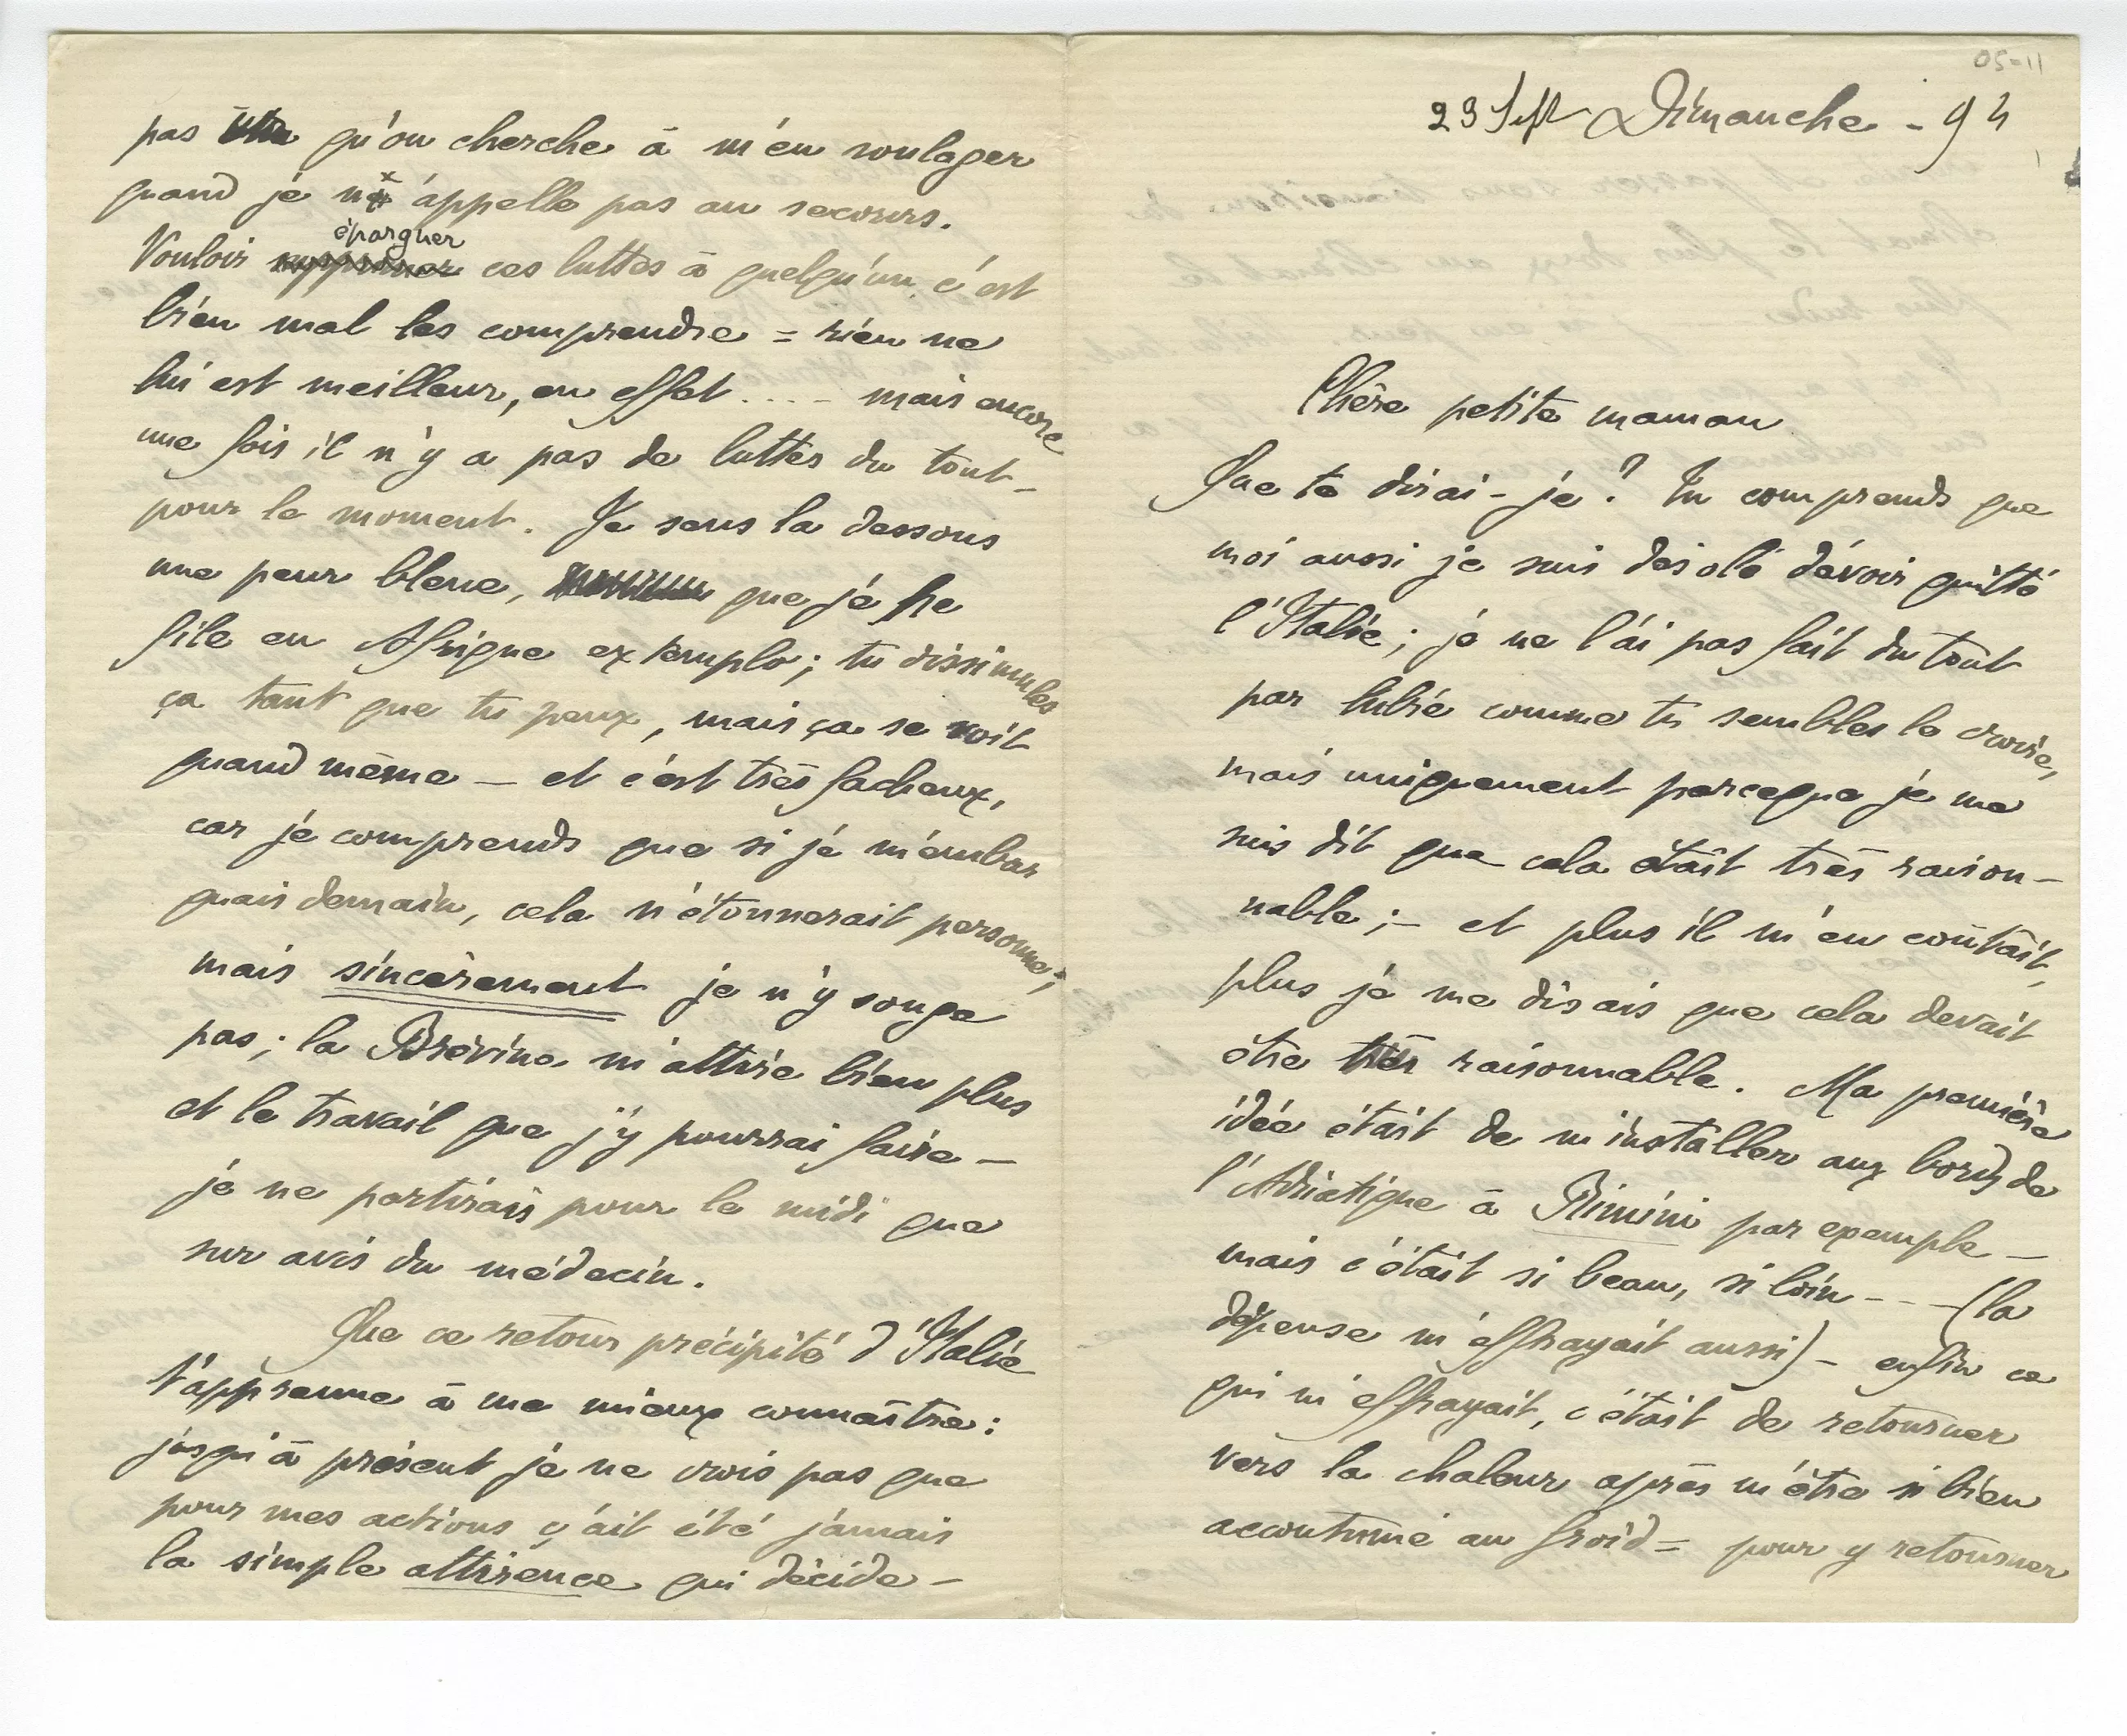 23 Sept Dimanche - 94
Chère petite maman
Que te dirai-je ? Tu comprends que
moi aussi je suis désolé d'avoir quitté
l'Italie ; je ne l'ai pas fait du tout
par lubie comme tu sembles le croire,
mais uniquement parceque je me
suis dit que cela était très raison-
nable ; - et plus il m'en coûtait,
plus je me disais que cela devait
être très raisonnable. Ma première
idée était de m'installer aux bords de
l'Adriatique à Rimini par exemple -
mais c'était si beau, si loin - - - (la
dépense m'effrayait aussi) - enfin ce
qui m'effrayait, c'était de retourner
vers la chaleur après m'être si bien
accoutumé au froid = pour y retourner
pas qu'on cherche à m'en soulager
quand je n'appelle pas au secours.
Vouloir épargner ces luttes à quelqu'un, c'est
bien mal les comprendre = rien ne
lui est meilleur, en effet .... mais encore
une fois il n'y a pas de luttes du tout -
pour le moment. Je sens la dessous
une peur bleue, que je ne
file en Afrique ex templo ; tu dissimules
ça tant que tu peux, mais ça se voit
quand même - et c'est très facheux,
car je comprends que si je m'embar
quais demain, cela n'étonnerait personne ;
mais sincèrement je n'y songe
pas ; la Brévine m'attire bien plus
et le travail que j'y pourrai faire -
je ne partirais pour le midi que
sur avis du médecin.
Que ce retour précipité d'Italie
t'apprenne à me mieux connaître :
jusqu'à présent je ne crois pas que
pour mes actions ç'ait été jamais
la simple attirence qui décide -
05-11